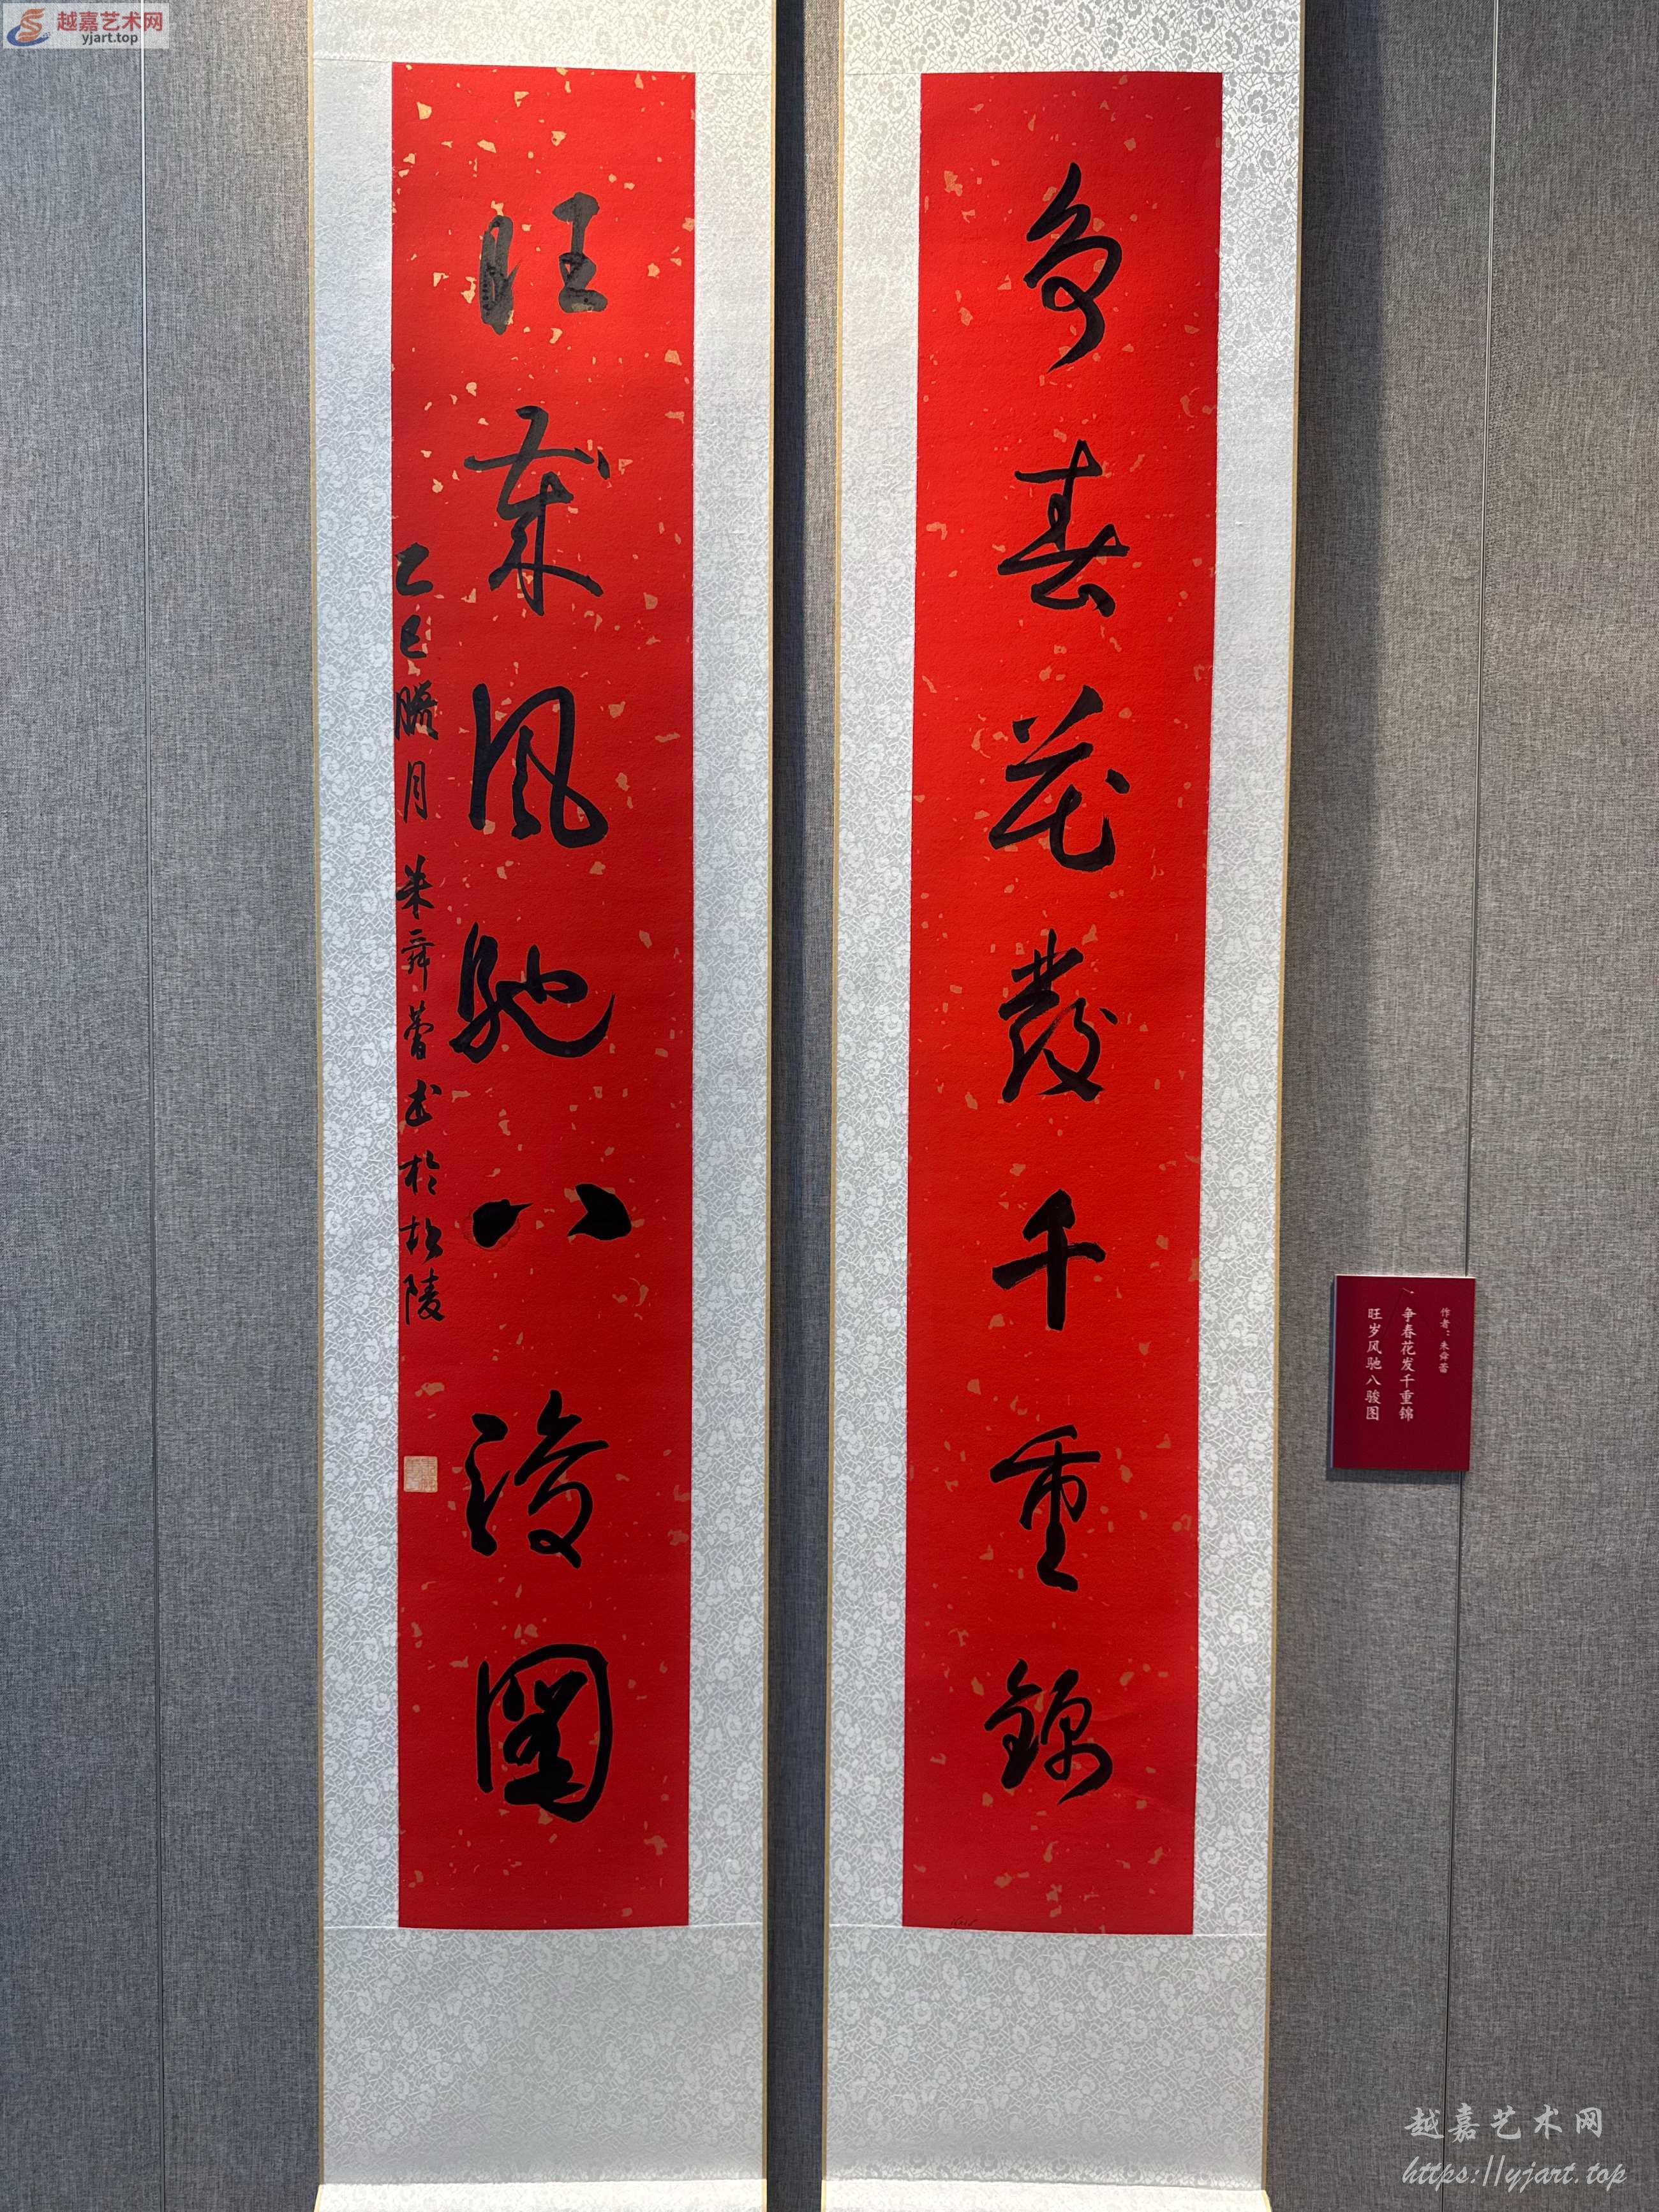 越嘉艺术网
yjart.top
争春花發千重錦
旺歲風馳八駿圖
乙巳臘月朱舜蕾书於杭陵
作者：朱舜蕾
争春花发千重锦
旺岁风驰八骏图
越嘉艺术网
https://yjart.top